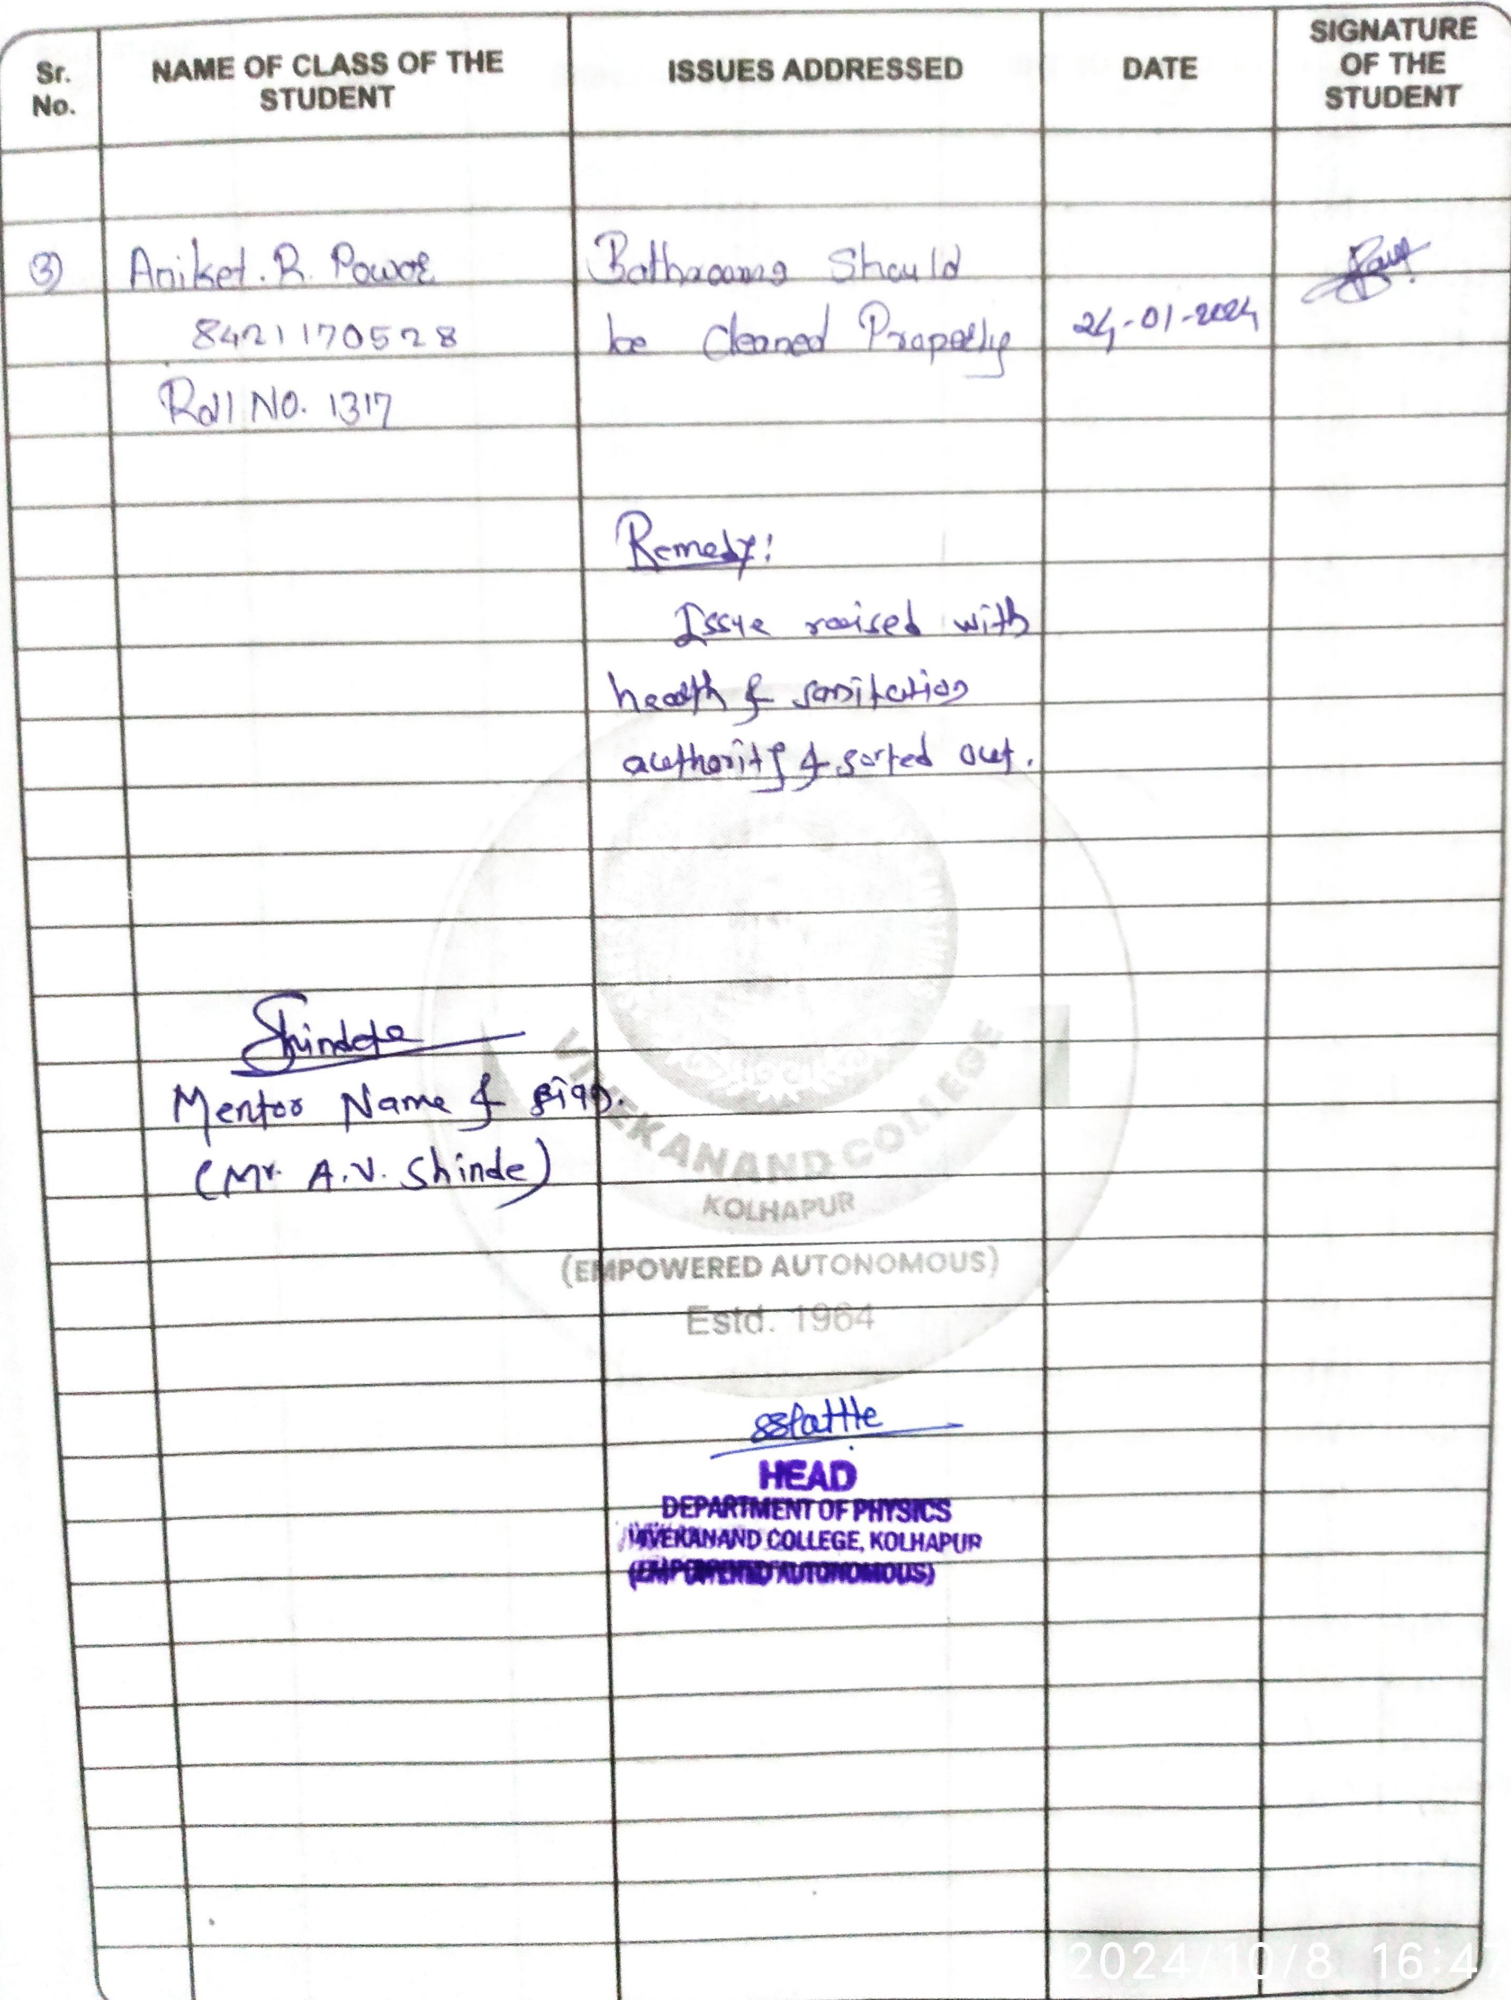 Sr. No.
NAME OF CLASS OF THE STUDENT
ISSUES ADDRESSED
DATE
SIGNATURE OF THE STUDENT
3) Aniket. R. Powar
8421170528
Roll NO. 1317
Bathrooms Should
be Cleaned Properly
24-01-2024
Remedy:
Issue raised with
health & sanitation
authority & sorted out.
Shinde
Mentor Name & sign.
(Mr. A.V. Shinde)
VIVEKANAND COLLEGE
KOLHAPUR
(EMPOWERED AUTONOMOUS)
Estd. 1964
HEAD
DEPARTMENT OF PHYSICS
VIVEKANAND COLLEGE, KOLHAPUR
(EMPOWERED AUTONOMOUS)
2024/10/8 16:47